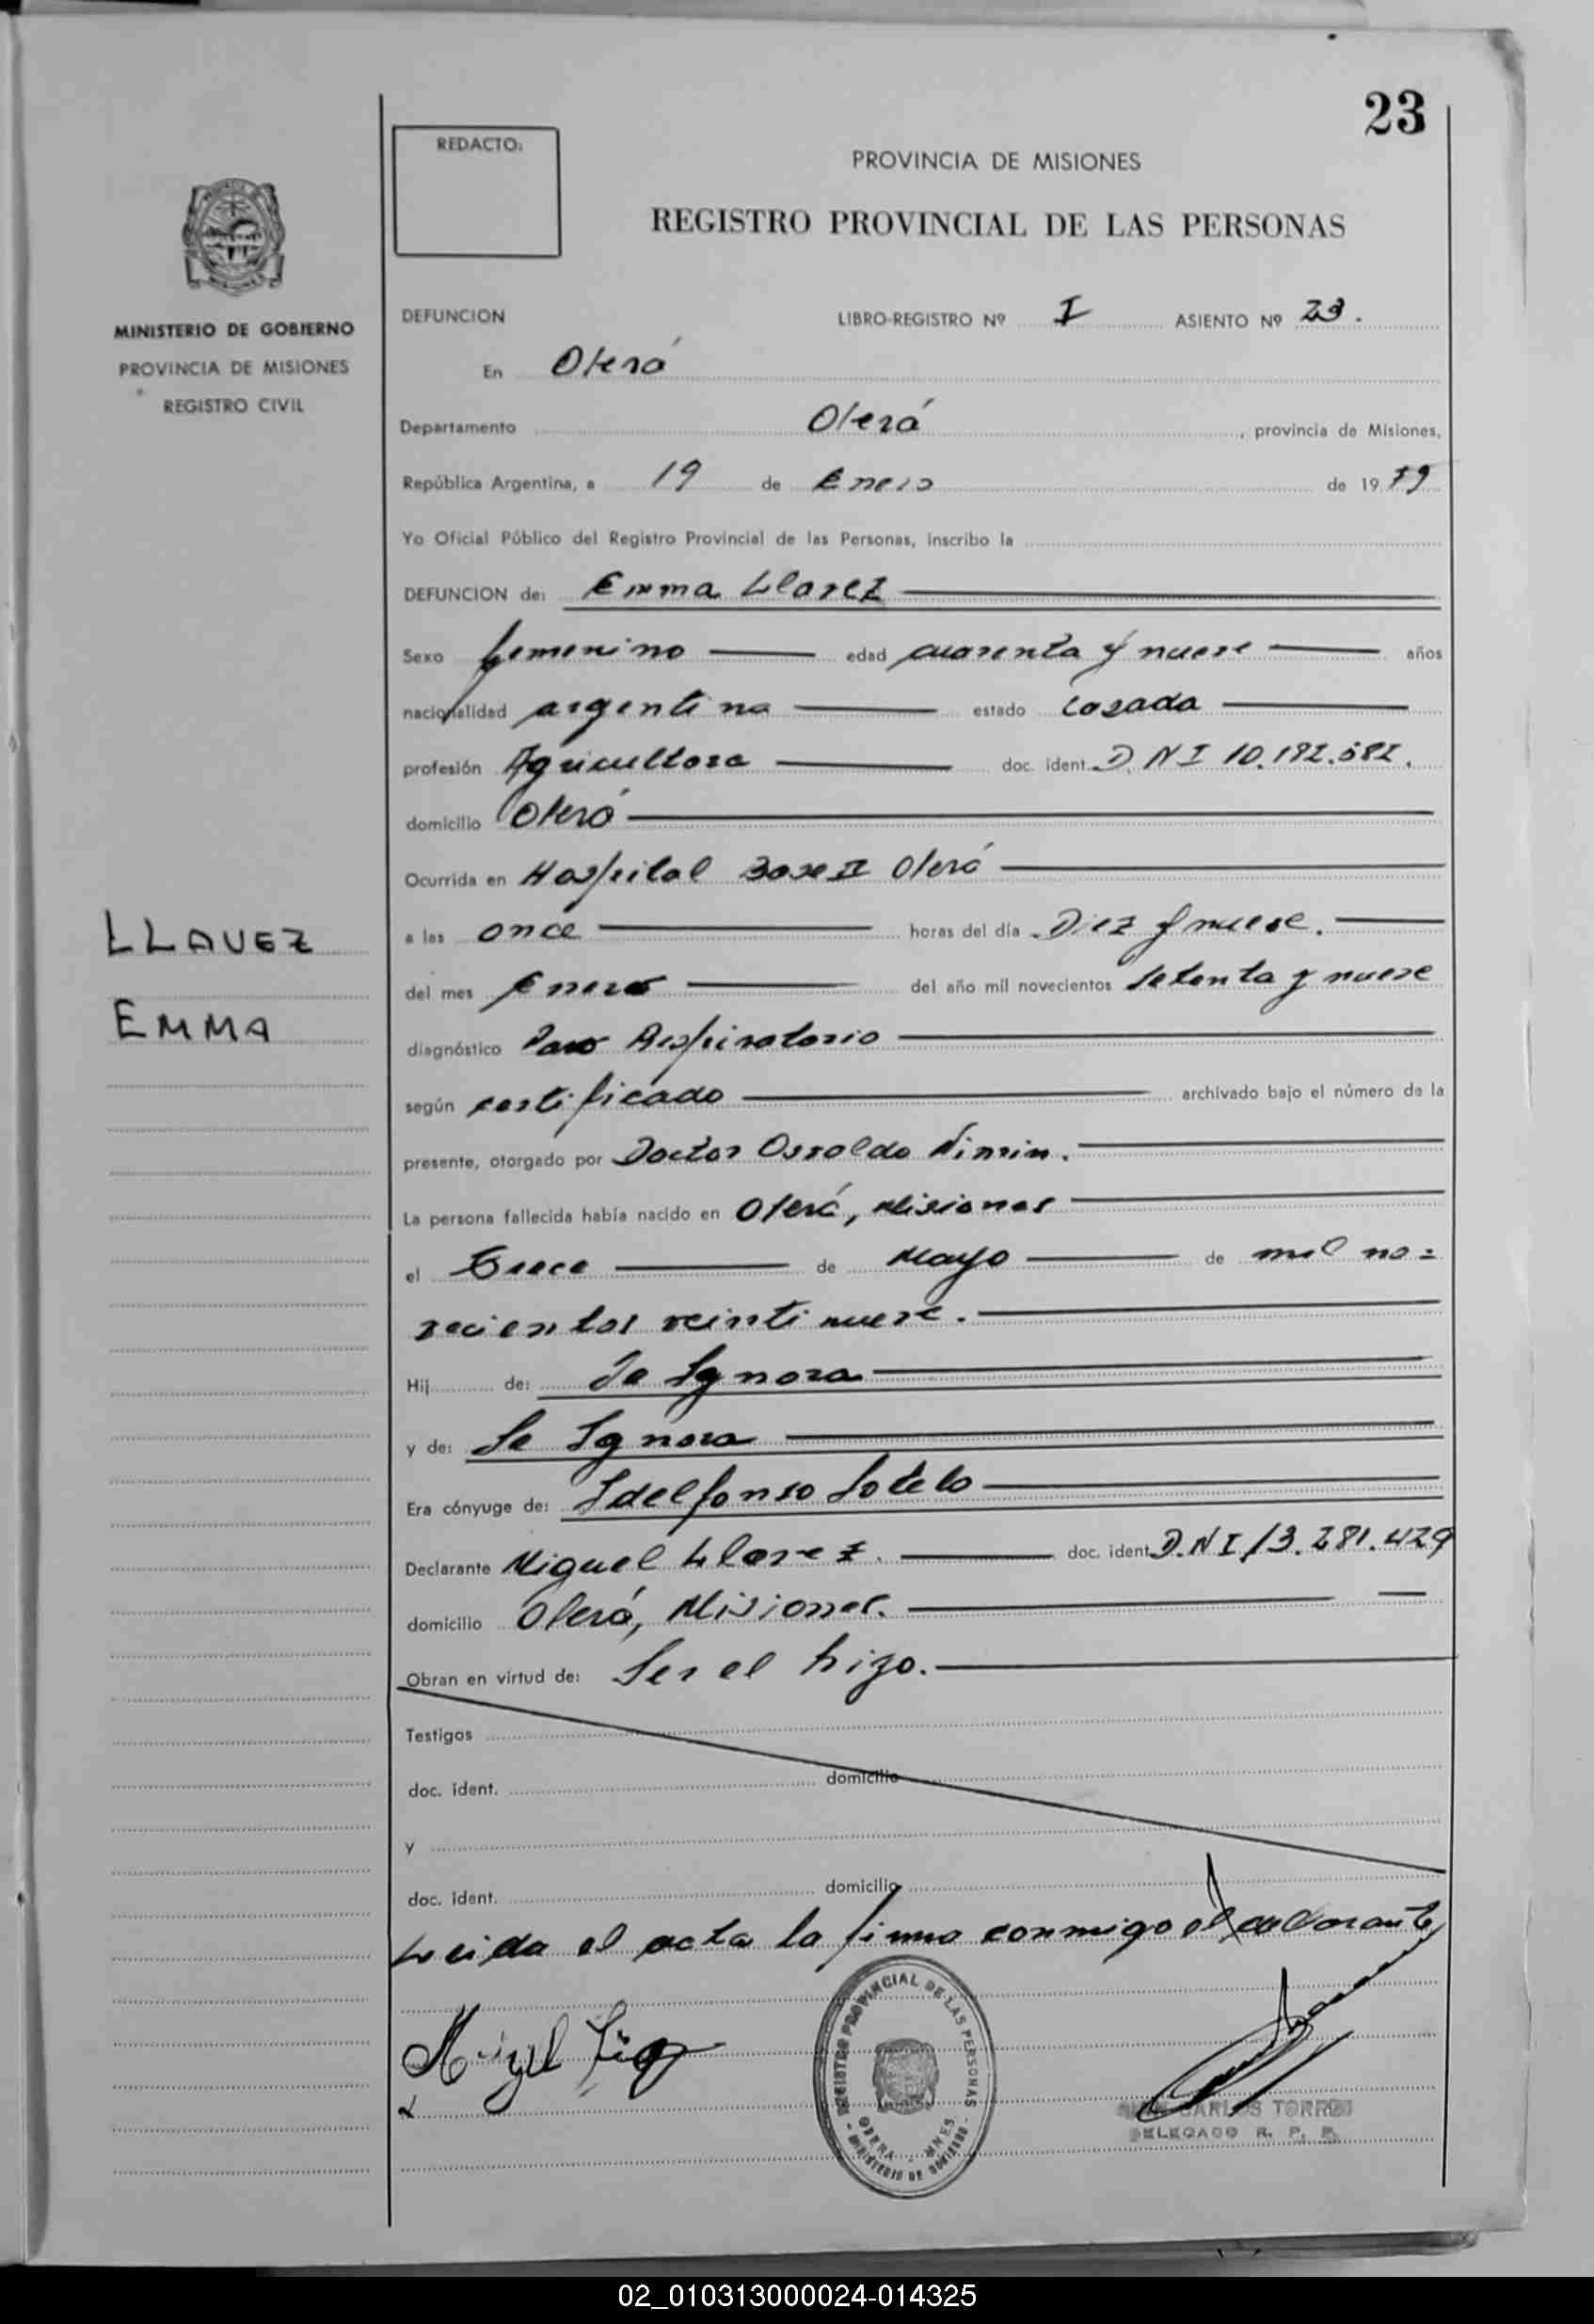 23
REDACTO:
PROVINCIA DE MISIONES
REGISTRO PROVINCIAL DE LAS PERSONAS
MINISTERIO DE GOBIERNO
PROVINCIA DE MISIONES
REGISTRO CIVIL
DEFUNCION LIBRO-REGISTRO Nº I ASIENTO Nº 23.
En Oberá
Departamento Oberá, provincia de Misiones,
República Argentina, a 19 de Enero de 1979
Yo Oficial Público del Registro Provincial de las Personas, inscribo la
DEFUNCION de: Emma Llavez
Sexo femenino edad cuarenta y nueve años
nacionalidad argentina estado casada
profesión Agricultora doc. ident. D.N I 10.192.582.
domicilio Oberá
Ocurrida en Hospital Base II Oberá
LLAVEZ
EMMA
a las once horas del día Diez y nueve.
del mes Enero del año mil novecientos setenta y nueve
diagnóstico Paro Respiratorio
según certificado archivado bajo el número de la
presente, otorgado por Doctor Osvaldo
La persona fallecida había nacido en Oberá, Misiones
el Trece de Mayo de mil no=
vecientos veintinueve.
Hij de: Se Ignora
y de: Se Ignora
Era cónyuge de: Idelfonso Sotelo
Declarante Miguel Llavez. doc. ident. D.N I 13.281.429
domicilio Oberá, Misiones.
Obran en virtud de: Ser el hijo.
Testigos
doc. ident. domicilio
y
doc. ident. domicilio
Leida el acta la firma conmigo el declarante
REGISTRO PROVINCIAL DE LAS PERSONAS
OBERA - MNES
MINISTERIO DE GOBIERNO
CARLOS TORRES
DELEGADO R. P. P.
02_010313000024-014325